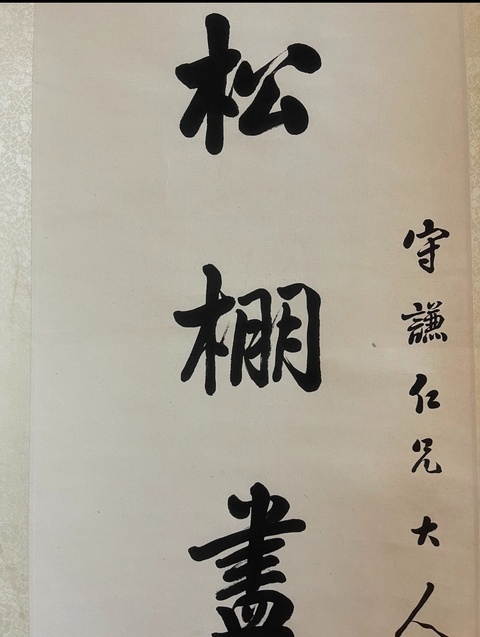 守謙仁兄大人
松棚盡